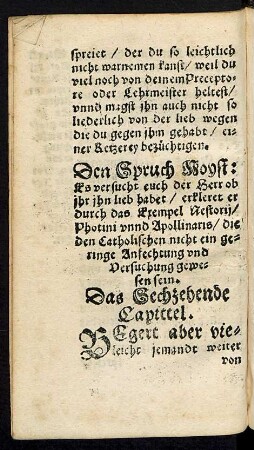 spreiet / der du so leichtlich
nicht warnemen kanst / weil du
viel noch von deinem Precepto-
re oder Lehrmeister heltest /
vnnd magst jhn auch nicht so
liederlich von der lieb wegen
die du gegen jhm gehabt / ei-
ner Ketzerey bezüchtigen.
Den Spruch Moysi:
Es versucht euch der Herr ob
jhr jhn lieb habet / erkleret er
durch das Exempel Nestorij /
Photini vnnd Apollinaris / die
den Catholischen nicht ein ge-
ringe Anfechtung vnd
Versuchung gewe-
sen sein.
Das Sechzehende
Capittel.
BEgert aber vie-
leicht jemandt weiter
von